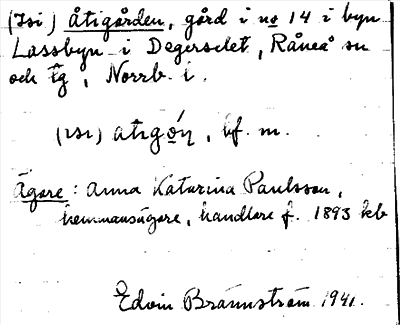 (Isi) Åtigården, gård i no 14 i byn
Lassbyn i Degerselet, Råneå sn
och tg, Norrb. l.
(ısı) atıgo̱ń, bf. m.
Ägare: Anna Katarina Paulsson,
hemmansägare, handlare f. 1893 kb
Edvin Brännström 1941.